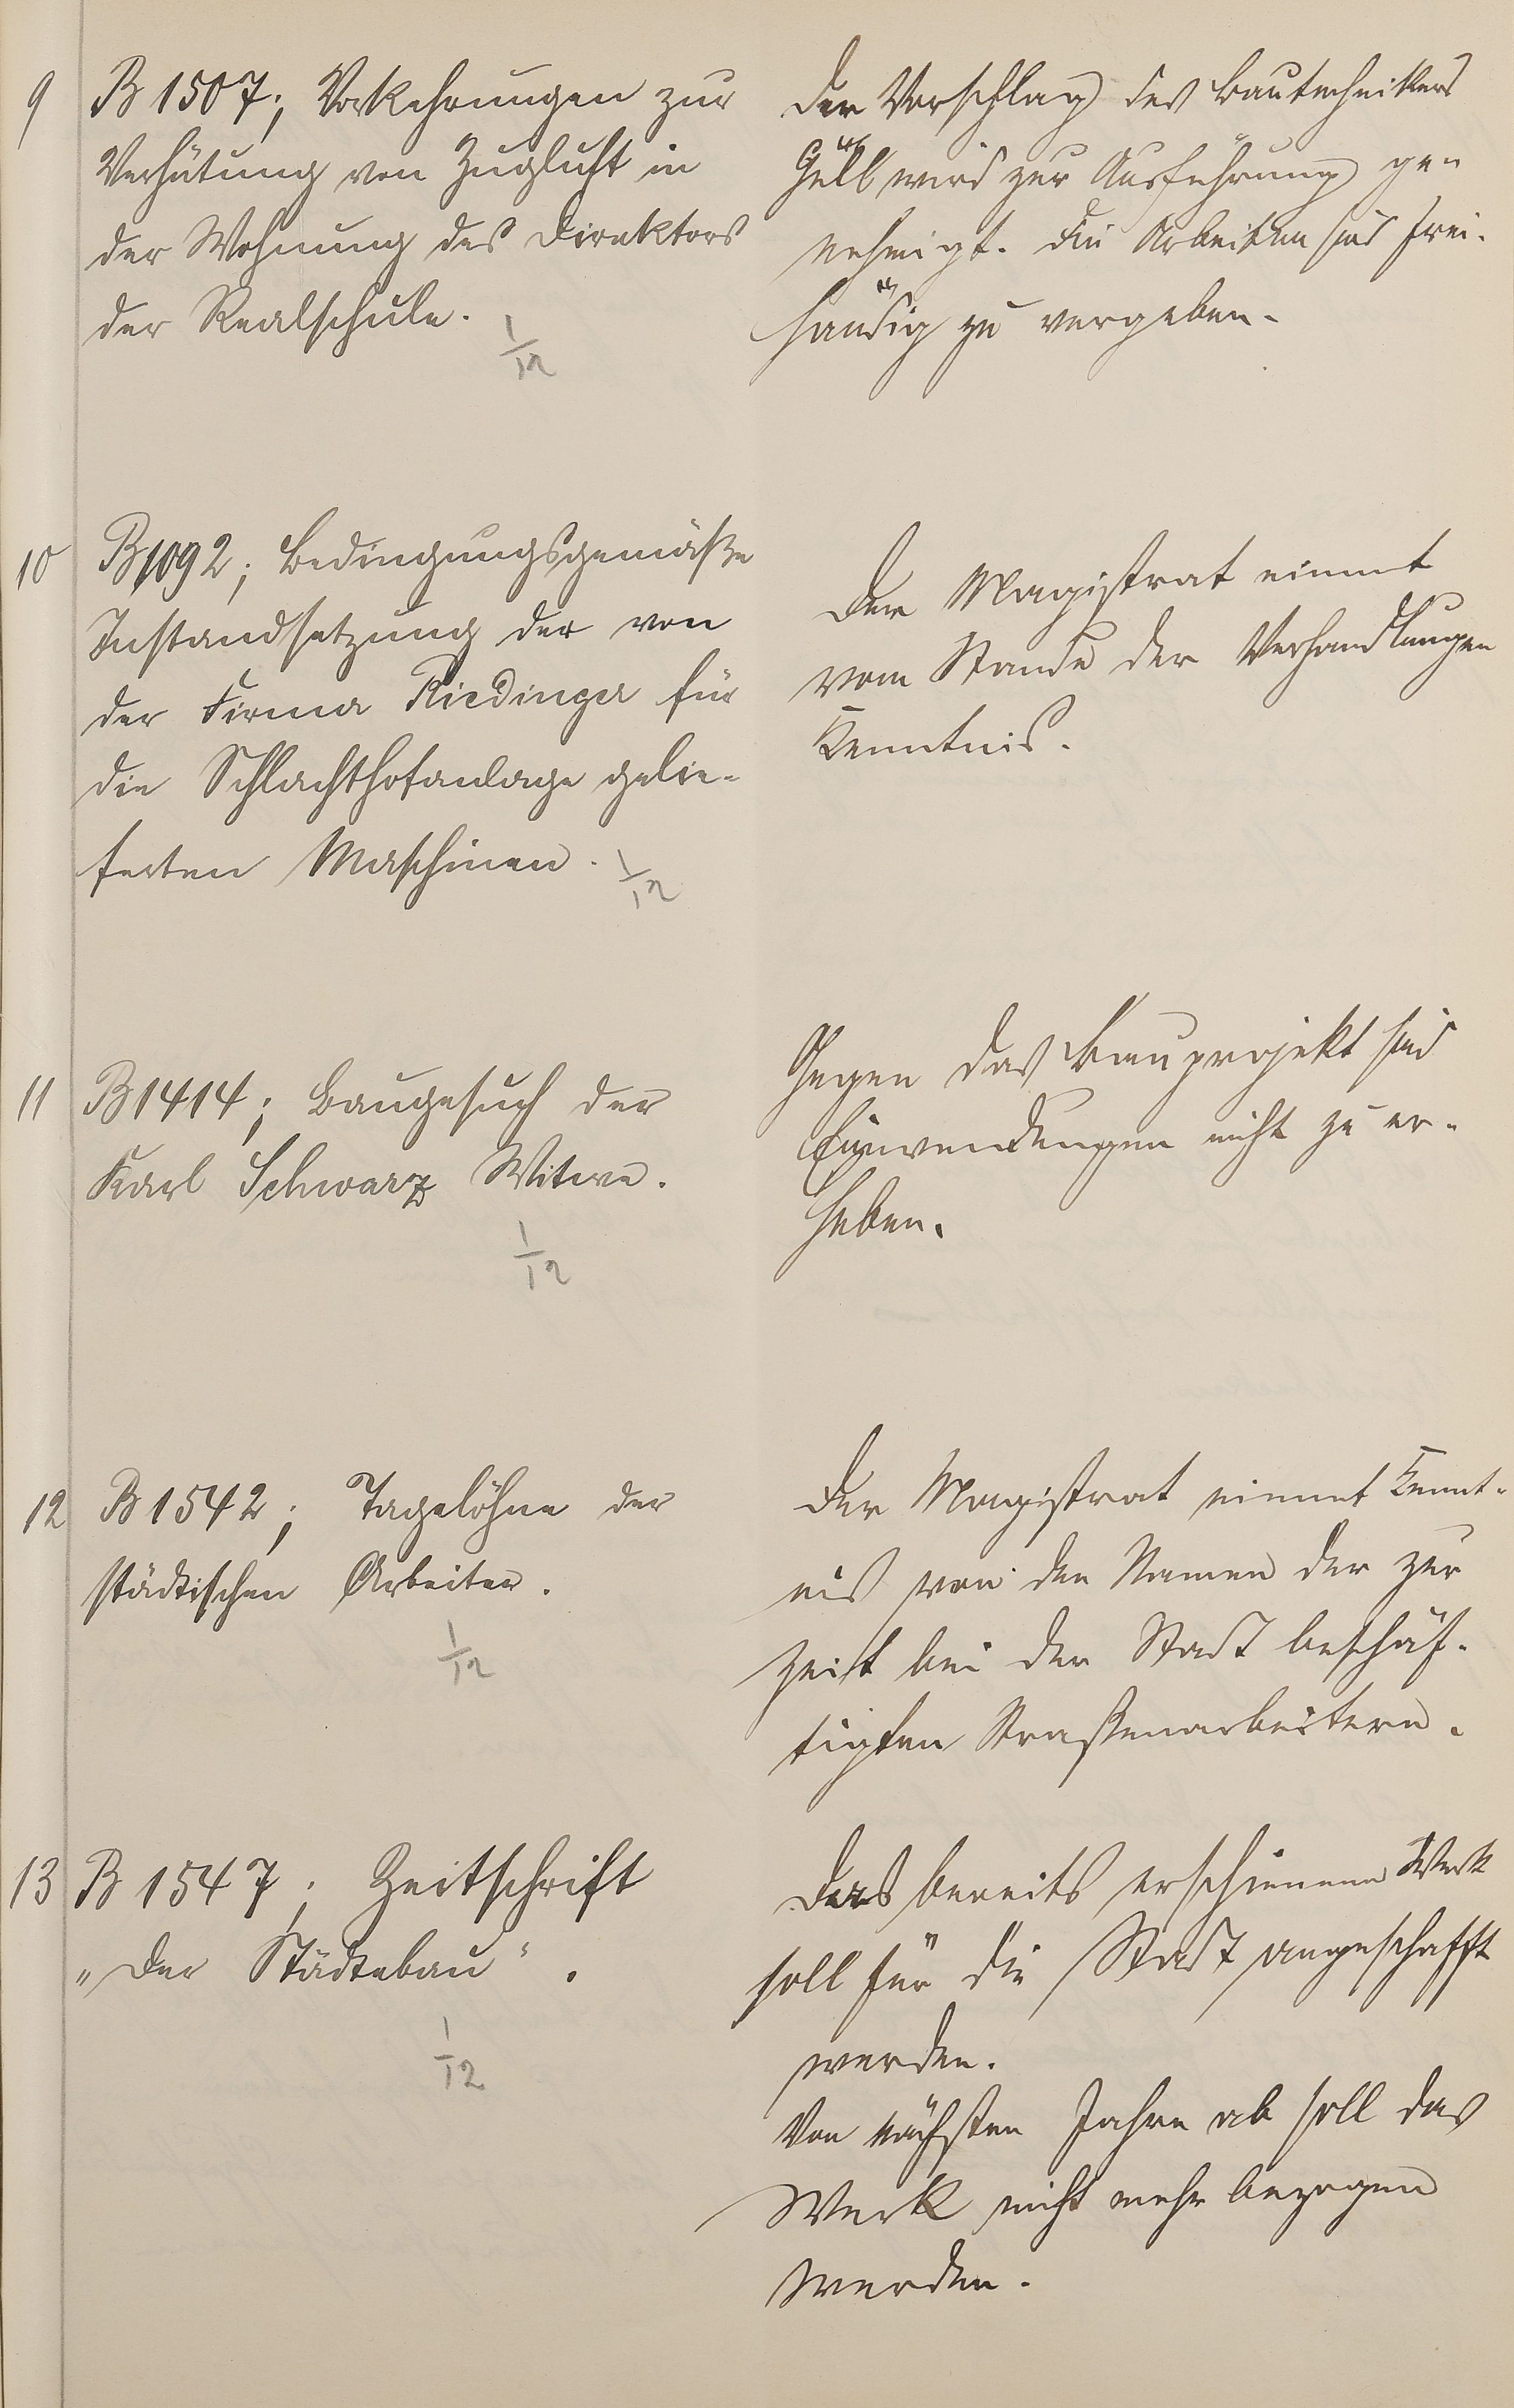 9
B 1507; Vorkehrungen zur
Verhütung von Zugluft in
der Wohnung des Direktors
der Realschule.
1/12
Der Vorschlag des Bautechnikers
Güll wird zur Ausführung ge-
nehmigt. Die Arbeiten sind frei-
händig zu vergeben.
10
B 1092; Bedingungsgemäße
Instandsetzung der von
der Firma Riedinger für
die Schlachthofanlage gelie-
ferten Maschinen.
1/12
Der Magistrat nimmt
vom Stande der Verhandlungen
Kenntnis.
11
B 1414; Baugesuch der
Karl Schwarz Witwe.
1/12
Gegen das Bauprojekt sind
Einwendungen nicht zu er-
heben.
12
B 1542; Tagelöhne der
städtischen Arbeiter.
1/12
Der Magistrat nimmt Kennt-
nis von den Namen der zur
Zeit bei der Stadt beschäf-
tigten Straßenarbeitern.
13
B 1547; Zeitschrift
„Der Städtebau“.
1/12
Das bereits erschienene Werk
soll für die Stadt angeschafft
werden.
Von nächsten Jahre ab soll das
Werk nicht mehr bezogen
werden.